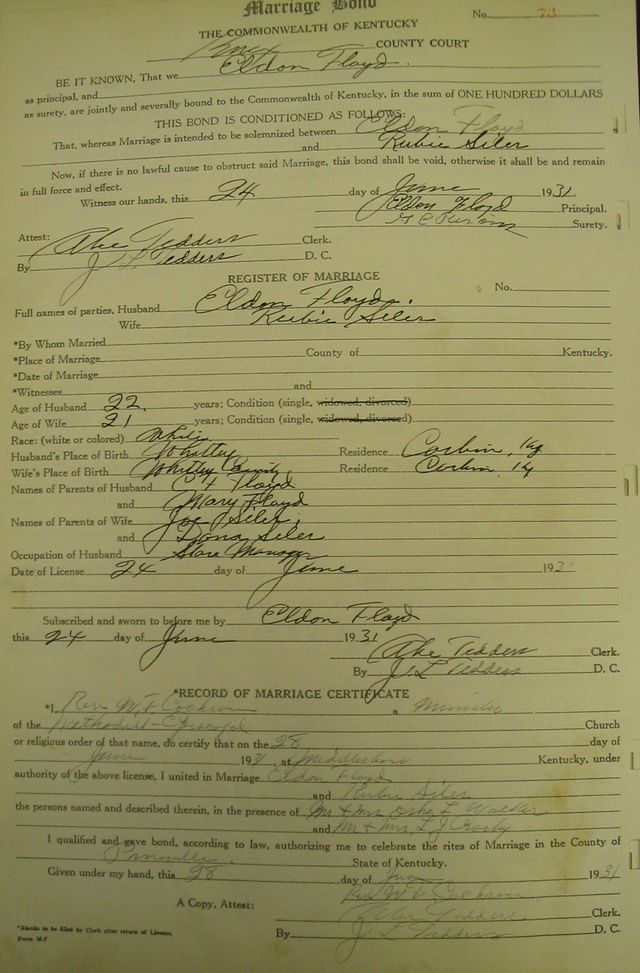 Marriage Bond
No. 73
THE COMMONWEALTH OF KENTUCKY
Knox COUNTY COURT
BE IT KNOWN, That we Eldon Floyd.
as principal, and
as surety, are jointly and severally bound to the Commonwealth of Kentucky, in the sum of ONE HUNDRED DOLLARS
THIS BOND IS CONDITIONED AS FOLLOWS:
That, whereas Marriage is intended to be solemnized between Eldon Floyd
and Rubie Siler
Now, if there is no lawful cause to obstruct said Marriage, this bond shall be void, otherwise it shall be and remain
in full force and effect.
Witness our hands, this 24 day of June 1931.
Eldon Floyd Principal.
Surety.
Attest: Abe Tedders Clerk.
By J L Tedders D. C.
REGISTER OF MARRIAGE
No.
Full names of parties, Husband Eldon Floyd.
Wife Rubie Siler
*By Whom Married
*Place of Marriage County of Kentucky.
*Date of Marriage
*Witnesses and
Age of Husband 22. years; Condition (single, widowed, divorced)
Age of Wife 21 years; Condition (single, widowed, divorced)
Race: (white or colored) White
Husband's Place of Birth Whitley Residence Corbin, Ky
Wife's Place of Birth Whitley County, Residence Corbin, Ky
Names of Parents of Husband Floyd
and Mary Floyd
Names of Parents of Wife Joe Siler,
and Dona Siler
Occupation of Husband Store Manager
Date of License 24 day of June 193
Subscribed and sworn to before me by Eldon Floyd
this 24 day of June 1931
Abe Tedders Clerk.
By J. L Tedders D. C.
*RECORD OF MARRIAGE CERTIFICATE
*I, Rev. W. F. Cochran a Minister
of the Methodist-Episcopal Church
or religious order of that name, do certify that on the 28 day of
June 1931, at Middlesboro Kentucky, under
authority of the above license, I united in Marriage Eldon Floyd
and Rubie Siler
the persons named and described therein, in the presence of Mr & Mrs L Walker
and Mr & Mrs L. J Crosby
I qualified and gave bond, according to law, authorizing me to celebrate the rites of Marriage in the County of
Pineville. State of Kentucky.
Given under my hand, this 28 day of June 1931
Rev W. F. Cochran
A Copy, Attest: Abe Tedders Clerk.
By J L Tedders D. C.
*Blanks to be filled by Clerk after return of License.
Form M-7